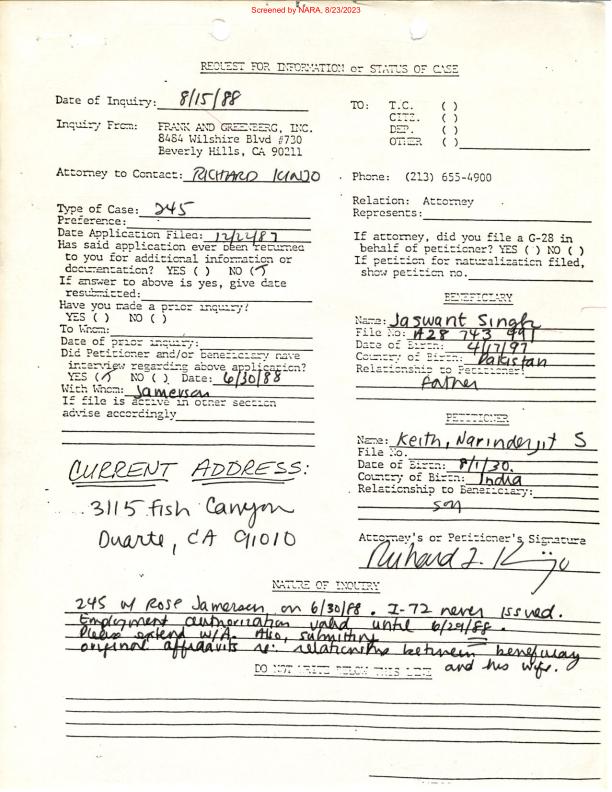 Screened by NARA, 8/23/2023
REQUEST FOR INFORMATION or STATUS OF CASE
Date of Inquiry: 8/15/88
TO: T.C. ( )
CITZ. ( )
DEP. ( )
OTHER ( )
Inquiry From: FRANK AND GREENBERG, INC.
8484 Wilshire Blvd #730
Beverly Hills, CA 90211
Attorney to Contact: RICHARD KINJO
Phone: (213) 655-4900
Relation: Attorney
Represents:
Type of Case: 245
Preference:
Date Application Filed: 12/2/87
Has said application ever been returned
to you for additional information or
documentation? YES ( ) NO (✓)
If answer to above is yes, give date
resubmitted:
Have you made a prior inquiry?
YES ( ) NO ( )
To Whom:
Date of prior inquiry:
Did Petitioner and/or beneficiary have
interview regarding above application?
YES (✓) NO ( ) Date: 6/30/88
With Whom: Jamerson
If file is active in other section
advise accordingly
If attorney, did you file a G-28 in
behalf of petitioner? YES ( ) NO ( )
If petition for naturalization filed,
show petition no.
BENEFICIARY
Name: Jaswant Singh
File No: A28 743 991
Date of Birth: 4/17/97
Country of Birth: Pakistan
Relationship to Petitioner:
father
PETITIONER
Name: Keith, Narinderjit S
File No.
Date of Birth: 8/1/30.
Country of Birth: India
Relationship to Beneficiary:
son
CURRENT ADDRESS:
3115 Fish Canyon
Duarte, CA 91010
Attorney's or Petitioner's Signature
Richard L. Kinjo
NATURE OF INQUIRY
245 w/ Rose Jamerson, on 6/30/88. I-72 never issued.
Employment authorization valid until 6/29/88.
Please extend W/A. Also, submitting
original affidavits re: relationship between beneficiary
and his wife.
DO NOT WRITE BELOW THIS LINE